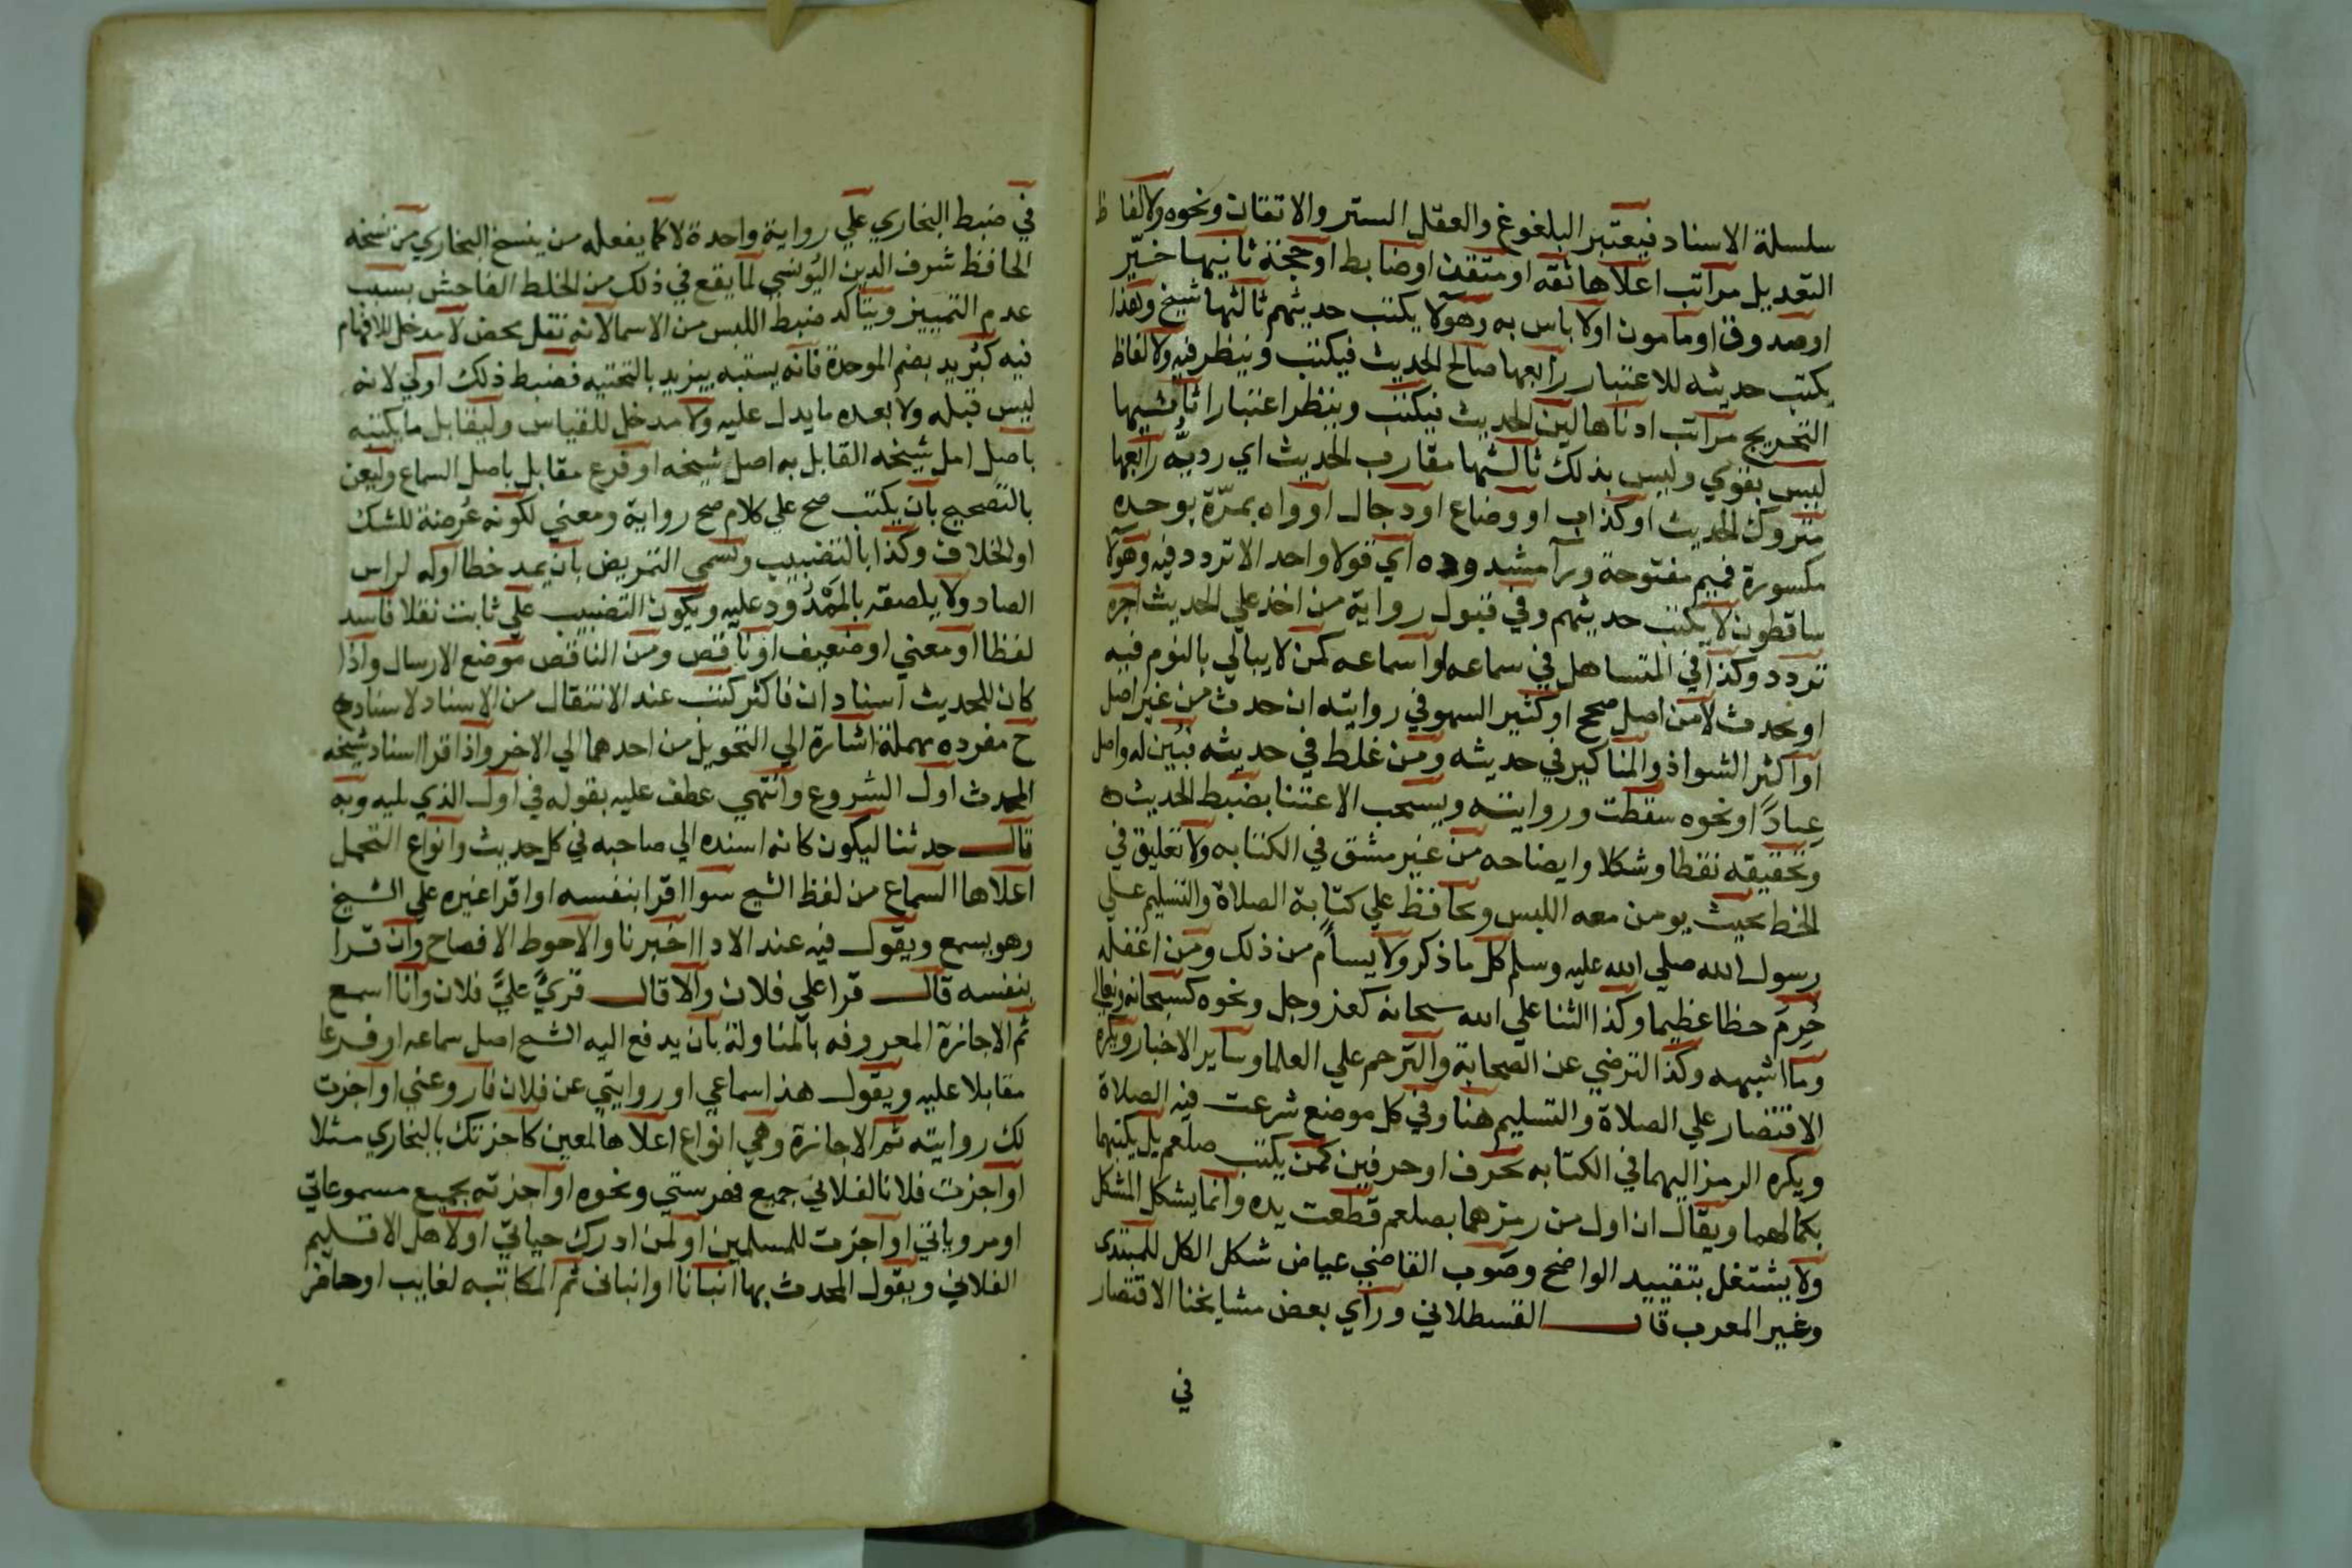 سلسلة الاسناد فيعتبر البلغوغ والعقل الستر والاتقان ونحوه ولالفاظ
التعديل مراتب اعلاها ثقه او متقن او ضابط او حجة ثانيها خيّر
او صدوق او مامون او لا باس به وهولا يكتب حديثهم ثالثها شيخ وهذا
يكتب حديثه للاعتبار رابعها صالح الحديث فيكتب وينظر فيه ولالفاظ
التجريح مراتب ادناها لين الحديث فيكتب وينظر اعتبارا ثانيها
ليس بقوي وليس بذلك ثالثها مقارب الحديث اي رديه رابعها
متروك الحديث او كذاب او وضاع او دجال او واه بمرّة بوحده
مكسورة فميم مفتوحة ورآ مشدوده اي قولا واحد الا تردد فيه وهولا
ساقطون لا يكتب حديثهم وفي قبول رواية من اخذ علي الحديث اجره
تردد وكذا في المتساهل في سماعه او اسماعه كمن لا يبالي بالنوم فيه
او يحدث لا من اصل صحيح او كثير السهو في روايته ان حدث من غير اصل
او اكثر الشواذ والمناكير في حديثه ومن غلط في حديثه فبين له واصل
عنادًا ونحوه سقطت وروايته ويستحب الاعتنا بضبط الحديث
وتحقيقه نقطا وشكلا وايضاحه من غير مشق في الكتابه ولا تعليق في
الخط بحيث يومن معه اللبس ويحافظ علي كتابة الصلاة والتسليم علي
رسول الله صلي الله عليه وسلم كل ما ذكر ولا يسأم من ذلك ومن اغفله
حُرِمَ حظا عظيما وكذا الثنا علي الله سبحانه كعز وجل ونحوه كسبحانه وتعالي
وما اشبهه وكذا الترضي عن الصحابة والترحم علي العلما وساير الاخبار ويكره
الاقتصار علي الصلاة والتسليم هنا وفي كل موضع شرعت فيه الصلاة
ويكره الرمز اليهما في الكتابه بحرف او حرفين كمن يكتب صلعم بل يكتبها
بكمالهما ويقال ان اول من رمزهما بصلعم قطعت يده وانما يشكل المشكل
ولا يشتغل بتقييد الواضح وصوب القاضي عياض شكل الكل للمبتدي
وغير المعرب قال القسطلاني ورأي بعض مشايخنا الاقتصار
في
في ضبط البخاري علي رواية واحدة لا كما يفعله من ينسخ البخاري من نسخه
الحافظ شرف الدين اليونسي لما يقع في ذلك من الخلط الفاحش بسبب
عدم التمييز ويتأكد ضبط اللبس من الاسما لانه نقل محض لا مدخل للافهام
فيه كبُريد بضم الموحدة فانه يشتبه بيزيد بالتحتيه فضبط ذلك اولي لانه
ليس قبله ولا بعده ما يدل عليه ولا مدخل للقياس وليقابل ما يكتبه
باصل اصل شيخه القابل به اصل شيخه او فرع مقابل باصل السماع وليعن
بالتصحيح بان يكتب صح علي كلام صح رواية ومعني لكونه عُرضة للشك
او الخلاف وكذا بالتضبيب وتسمي التمريض بان يمد خطا اوله لراس
الصاد ولا يلصقه بالممدود عليه ويكون التضبيب علي ثابت نقلا فاسد
لفظا او معني او ضعيف او ناقص ومن الناقص موضع الارسال واذا
كان للحديث اسنادان فاكثر كتب عند الانتقال من الاسناد لاسناده
ح مفرده مهملة اشارة الي التحويل من احدهما الي الاخر واذا قرا اسناد شيخه
المحدث اول الشروع وانتهي عطف عليه بقوله في اول الذي يليه وبه
قال حدثنا ليكون كانه اسنده الي صاحبه في كل حديث وانواع التحمل
اعلاها السماع من لفظ الشيخ سوا اقرا بنفسه او اقرا غيره علي الشيخ
وهو يسمع ويقول فيه عند الادا اخبرنا والاحوط الافصاح وان قرا
بنفسه قال قرا علي فلان والا قال قريَ عليَّ فلان وانا اسمع
ثم الاجازة المعروفه بالمناولة بان يدفع اليه الشيح اصل سماعه او فرعا
مقابلا عليه ويقول هذا سماعي او روايتي عن فلان فاروعني او اجزت
لك روايته ثم الاجازة وهي انواع اعلاها لمعين كاجزتك بالبخاري مثلا
او اجزت فلانا الفلاني جميع فهرستي ونحوه او اجزته بجميع مسموعاتي
او مروياتي او اجزت للمسلمين او لمن ادرك حياتي او لاهل الاقليم
الفلاني ويقول المحدث بها انبانا او انباني ثم المكاتبه لغايب او حاضر